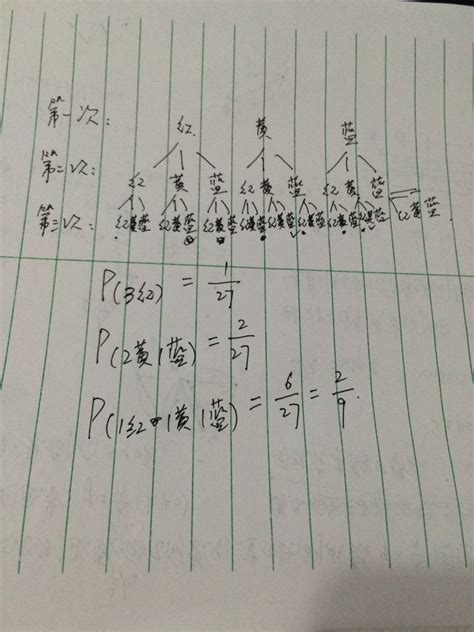 第一次: 红 黄 蓝
第二次: 红 黄 蓝 红 黄 蓝 红 黄 蓝
第三次: 红黄蓝 红黄蓝 红黄蓝 红黄蓝 红黄蓝 红黄蓝 红黄蓝 红黄蓝 红黄蓝
P(3红) = 1/27
P(2黄1蓝) = 2/27
P(1红1黄1蓝) = 6/27 = 2/9.